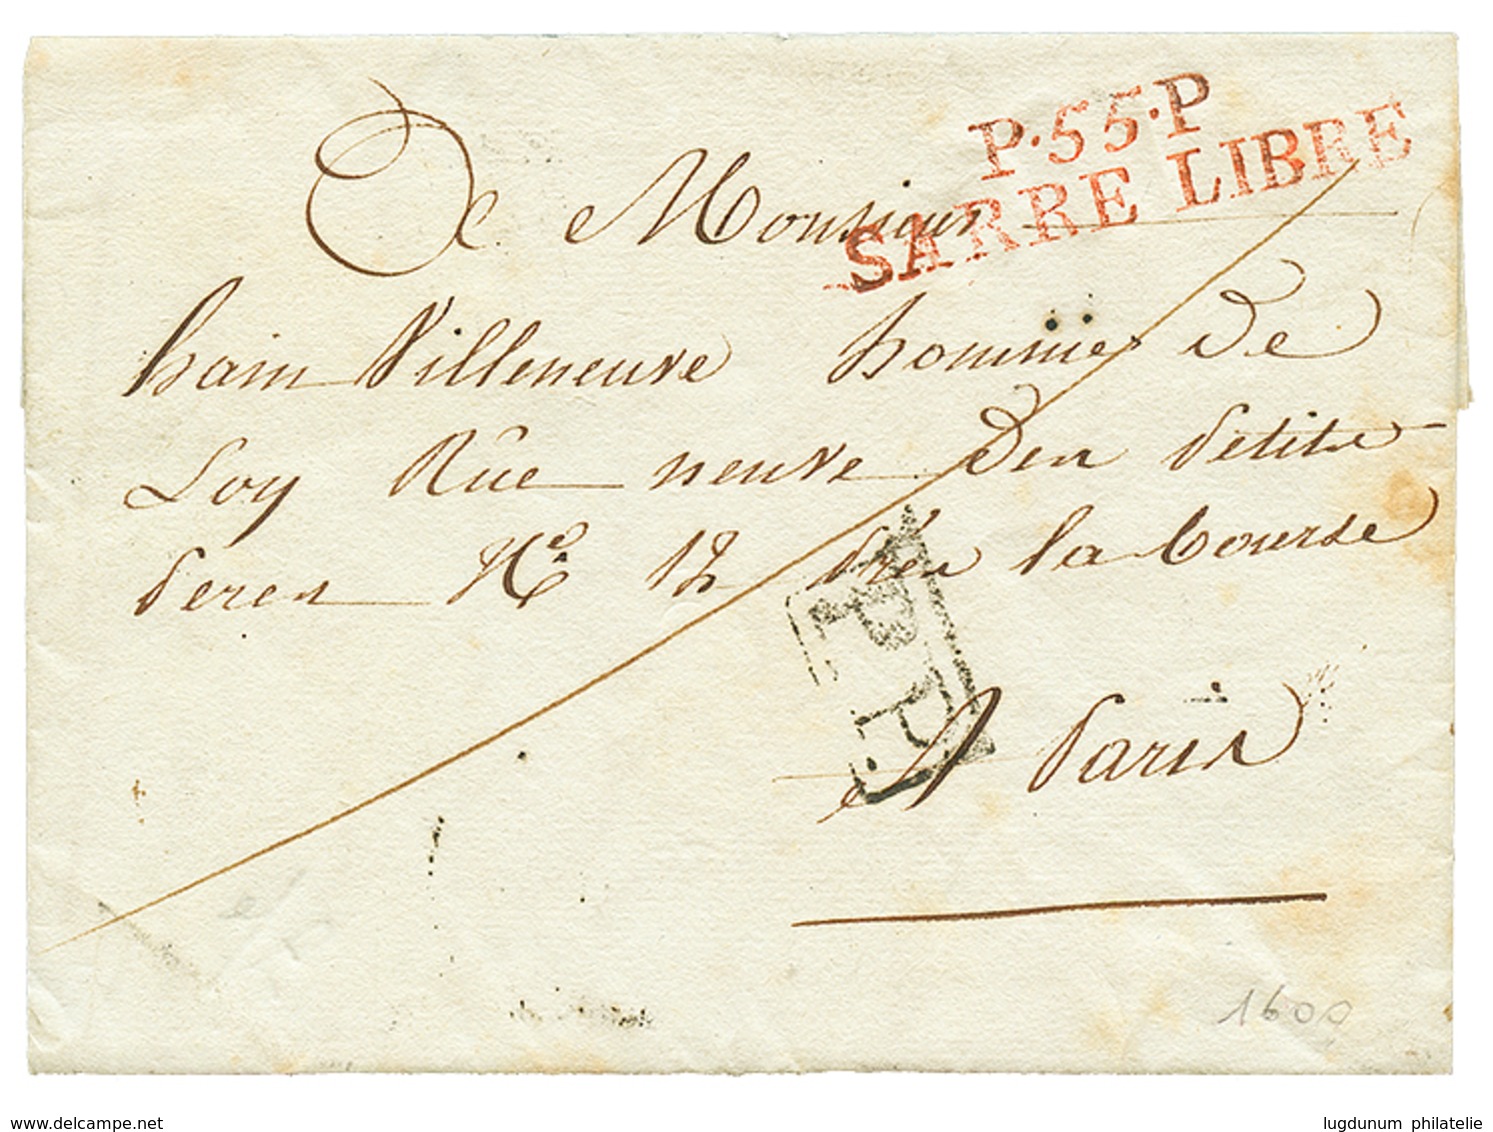 P.55.P
SARRE LIBRE
De Monsieur
hain Villeneuve homme de
Loy Rûe neuve den petits
peres No 12 prés la bourse
P.P.
A Paris
1600
www.delcampe.net
lugdunum philatelie